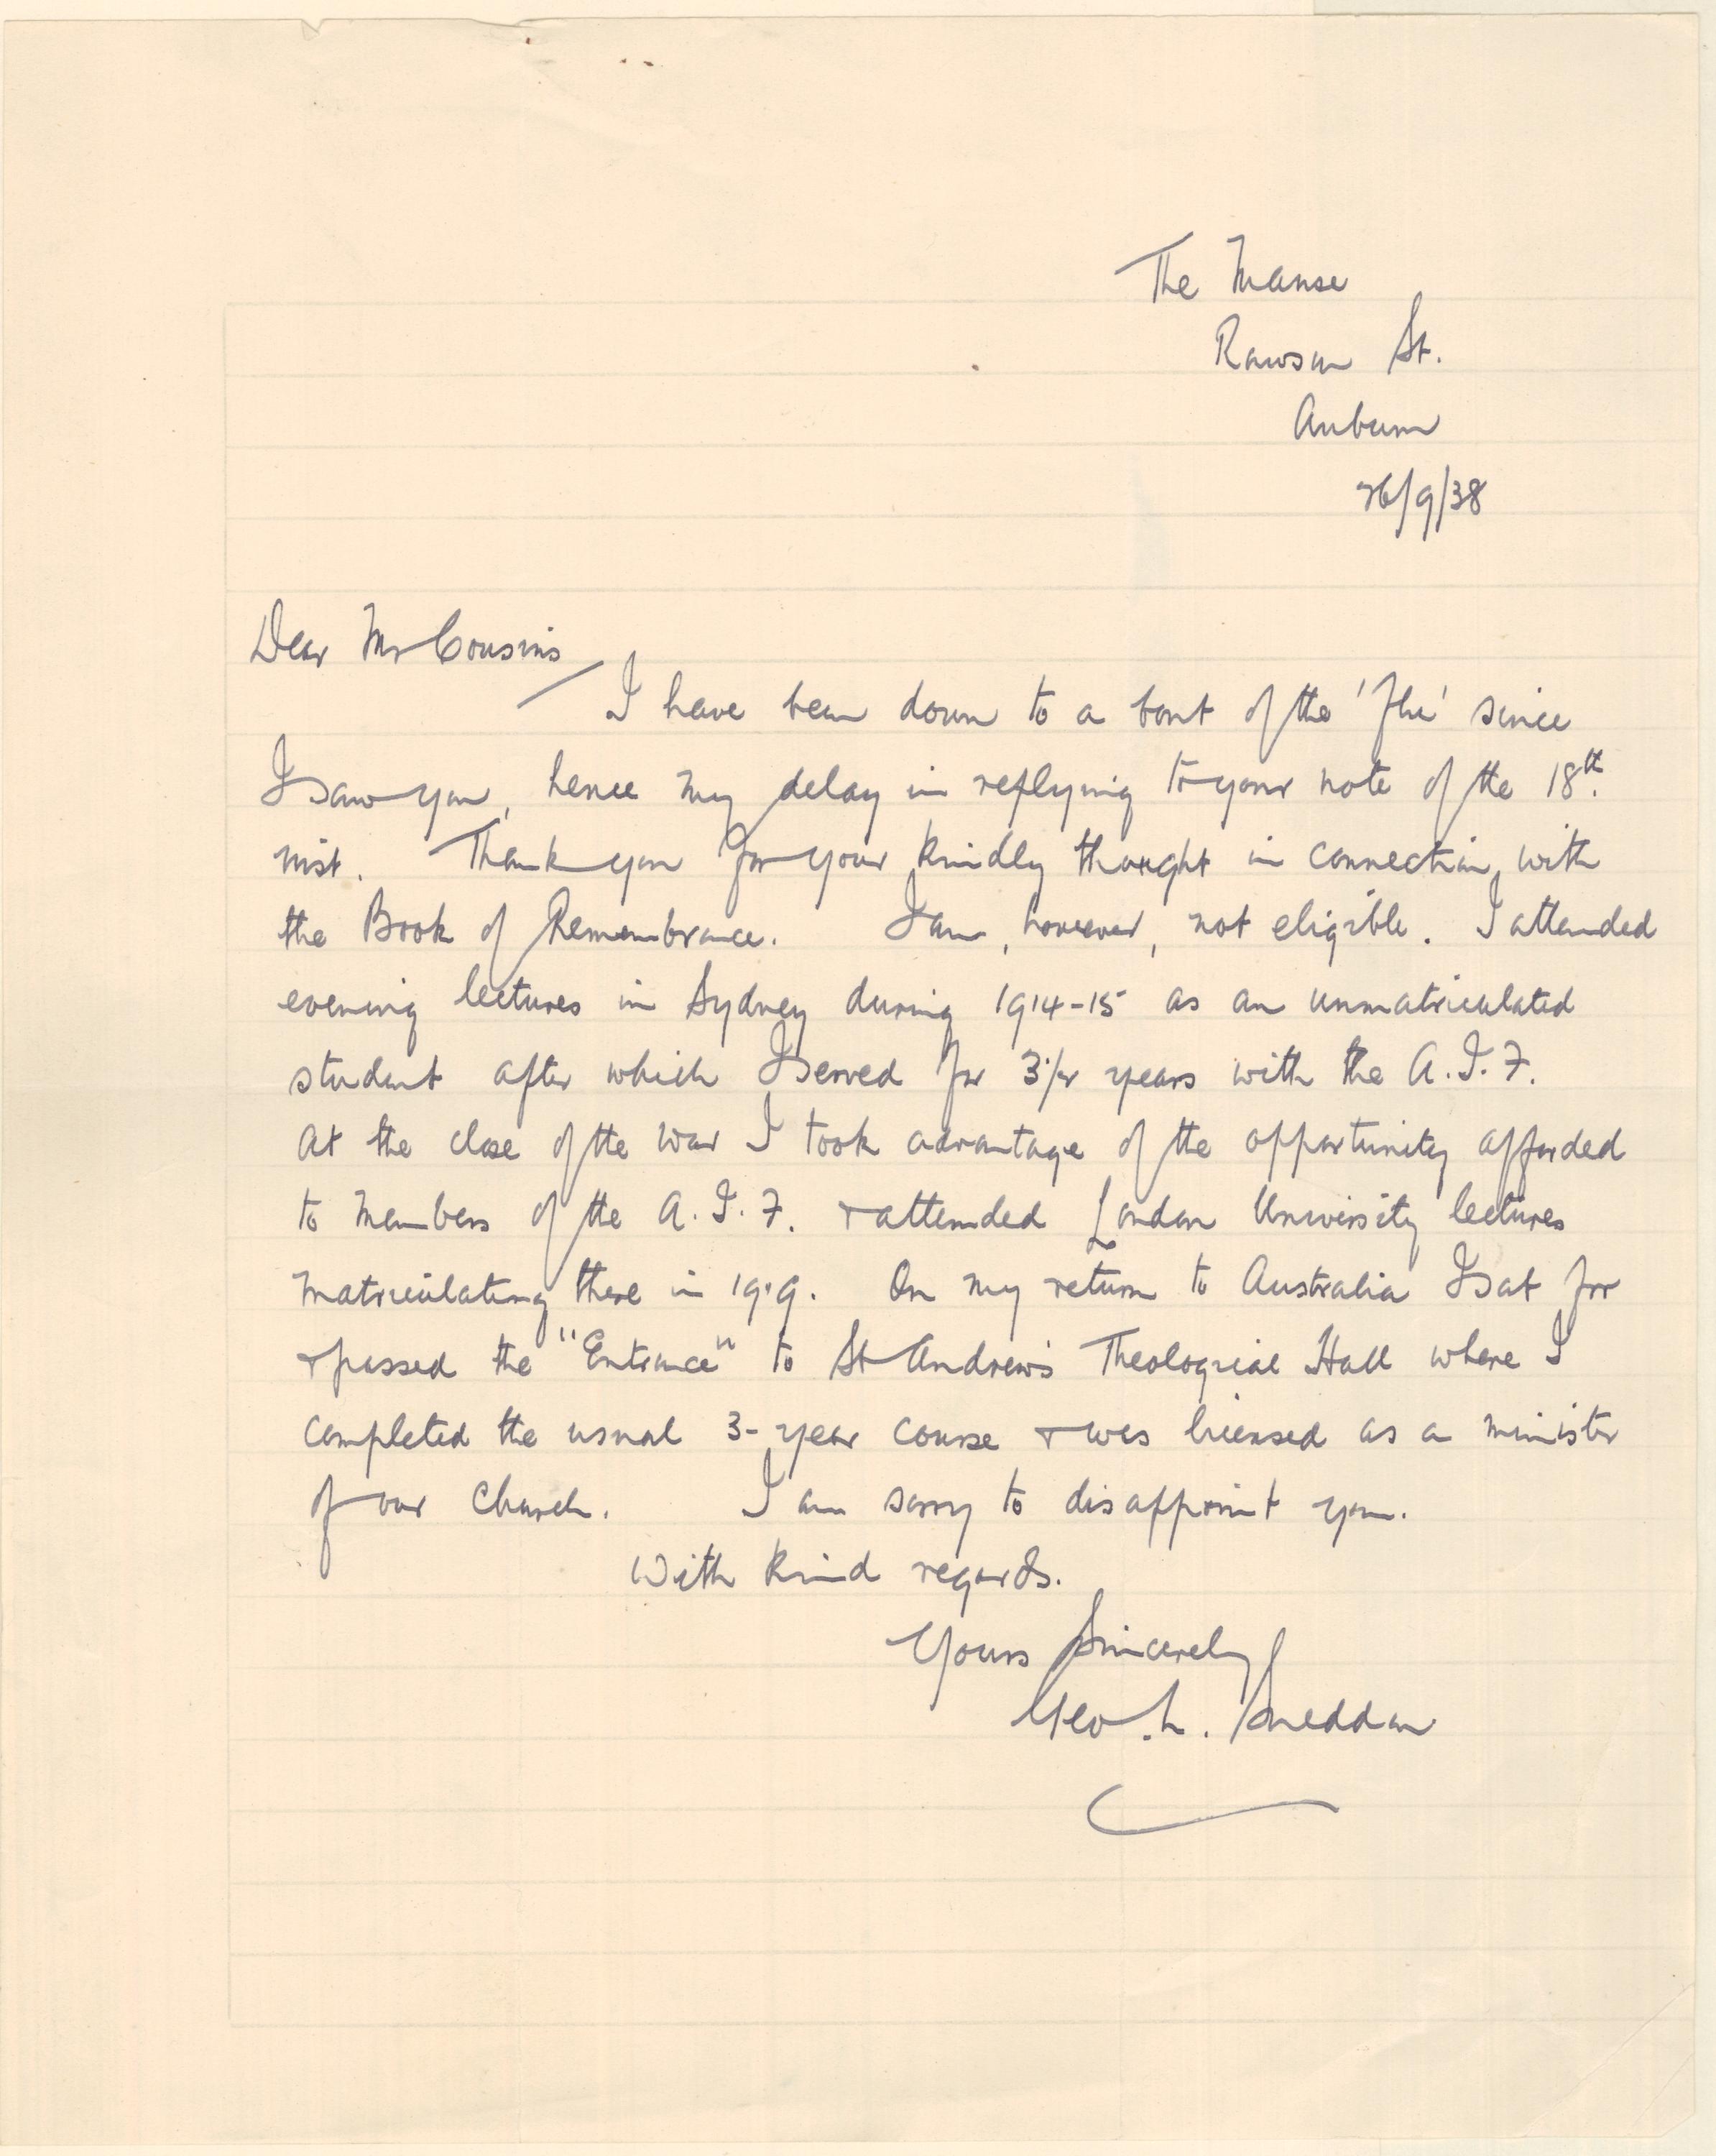 The Manse
Rawson St.
Auburn
26/9/38
Dear Mr Cousins
I have been down to a bout of the 'flu' since
I saw you, hence my delay in replying to your note of the 18th.
inst. Thank you for your kindly thought in connection with
the Book of Remembrance. I am, however, not eligible. I attended
evening lectures in Sydney during 1914-15 as an unmatriculated
student after which I served for 3½ years with the A.I.F.
At the close of the war I took advantage of the opportunity afforded
to members of the A.I.F. & attended London University lectures
matriculating there in 1919. On my return to Australia I sat for
& passed the "Entrance" to St Andrew's Theological Hall where I
completed the usual 3-year course & was licensed as a minister
of our Church. I am sorry to disappoint you.
With kind regards.
Yours Sincerely
Geo. L. Sneddon